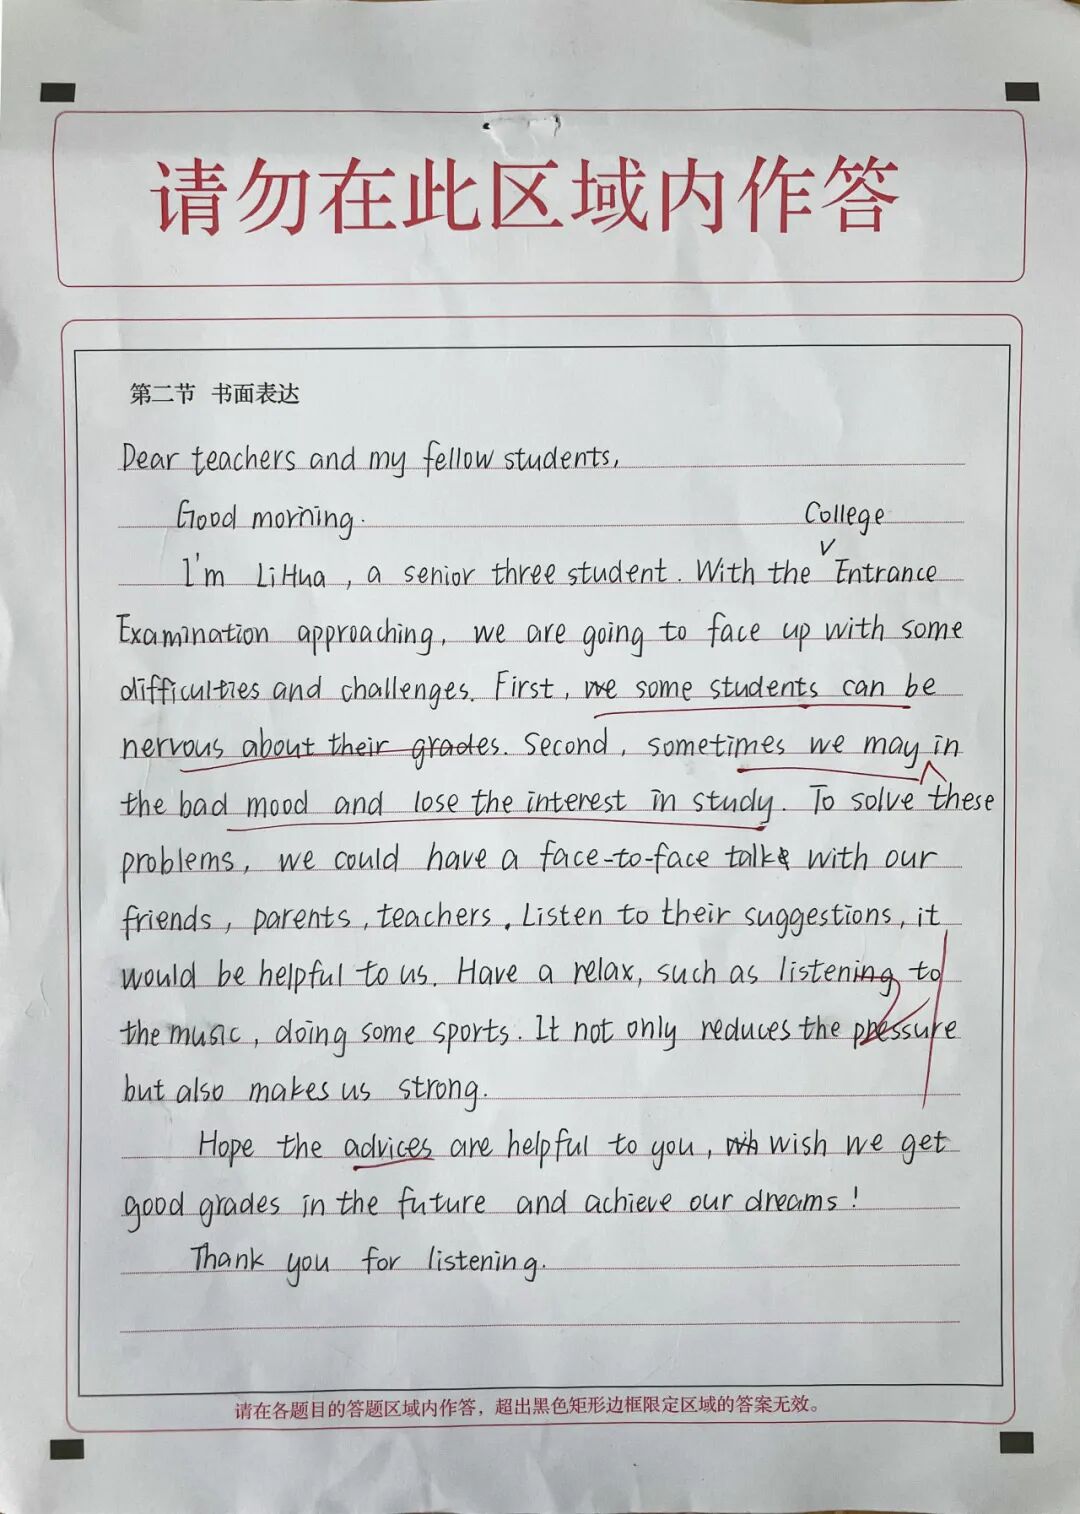 请勿在此区域内作答
第二节 书面表达
Dear teachers and my fellow students,
Good morning.
College
I'm LiHua, a senior three student. With the Entrance
Examination approaching, we are going to face up with some
difficulties and challenges. First, we some students can be
nervous about their grades. Second, sometimes we may in
the bad mood and lose the interest in study. To solve these
problems, we could have a face-to-face talk with our
friends, parents, teachers. Listen to their suggestions, it
would be helpful to us. Have a relax, such as listening to
the music, doing some sports. It not only reduces the pressure
but also makes us strong.
Hope the advices are helpful to you, wish we get
good grades in the future and achieve our dreams!
Thank you for listening.
请在各题目的答题区域内作答，超出黑色矩形边框限定区域的答案无效。